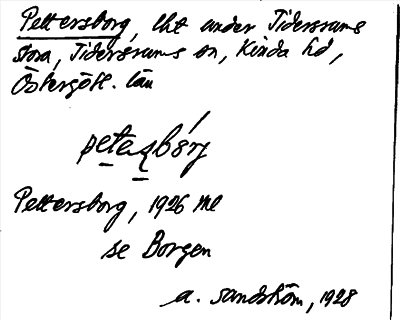 Pettersborg, lht under Tidersrums
stora, Tidersrums sn, Kinda hd,
Östergötl. län
petesbórj
Pettersborg, 1926 Me
se Borgen
a. Sandström, 1928